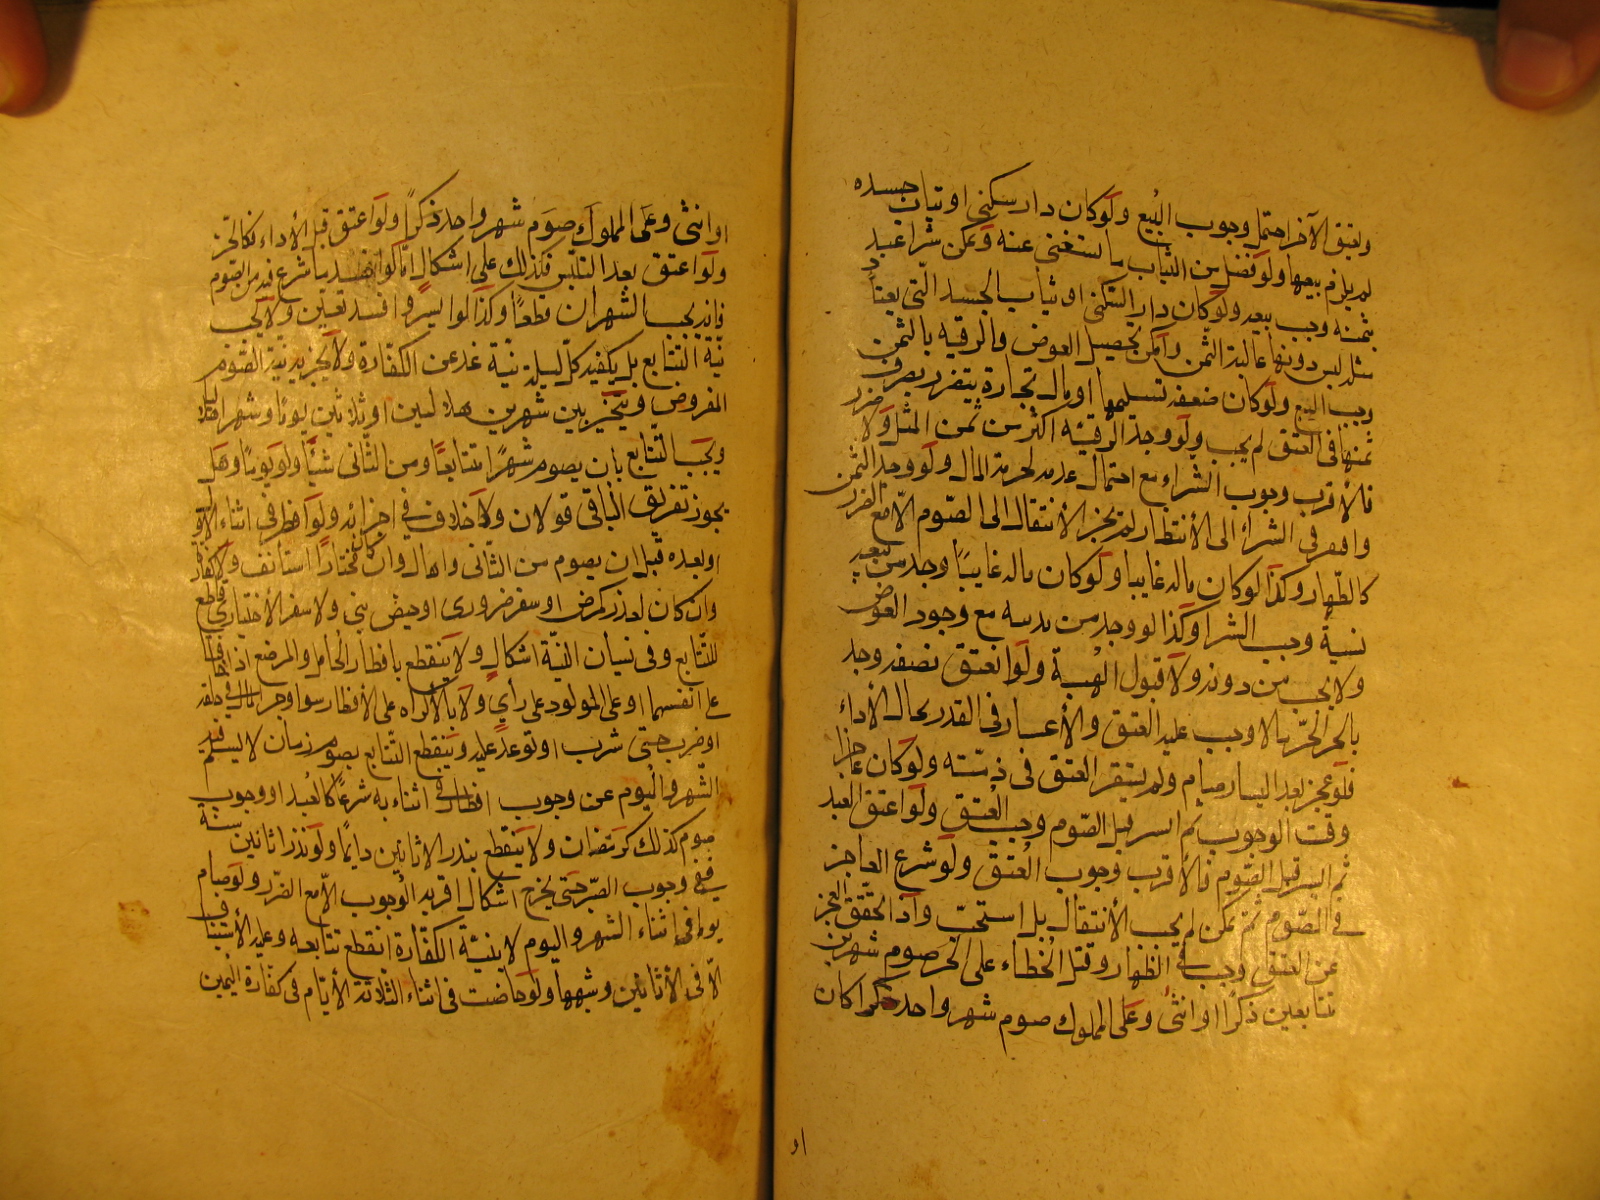 ويعتق الآخر احتمل وجوب البيع ولو كان دار سكنى او ثياب جسده
لم يلزم بيعها ولو فضل من الثياب ما يستغنى عنه وعكن شرا عبد
بثمنه وجب بيعه ولو كان دار السكنى او ثياب الجسد التي يعتاد
مثله لبس دونها عالية الثمن وأمكن تحصيل العوض والرقبة بالثمن
وجب البيع ولو كان ضعفه تسليمها او مال تجارة يتضرر بصرف
ثمنها في العتق لم يجب ولو وجد الرقبة اكثر من ثمن المثل ولا ضرر
فالأقرب وجوب الشراء مع احتمال عدمه لحرمة المال ولو وجد الثمن
وافتقر في الشراء الى الأنتظار لم يجز الأنتقال الى الصوم الا مع الضرر
كالظهار وكذا لو كان ماله غايبا ولو كان ماله غايبًا وجد من يبيعه
نسية وجب الشرا وكذا لو وجد من يدينه مع وجود العوض
ولا يجب من دونه ولا قبول الهبة ولو انعتق نصفه وجد
بالجزء الحر مالا وجب عليه العتق والأعسار في القدر بحال الأداء
فلو عجز بعد اليسار صام ولم يستقر العتق في ذمته ولو كان عاجزا
وقت الوجوب ثم ايسر قبل الصوم وجب العتق ولو اعتق العبد
ثم ايسر قبل الصوم فالأقرب وجوب العتق ولو شرع العاجز
في الصوم ثم تمكن لم يجب الأنتقال بل استحب واذا تحقق العجز
عن العتق وجب في الظهار وقتل الخطاء على الحر صوم شهرين
متتابعين ذكرًا او انثى وعلى المملوك صوم شهر واحد ذكرا كان
او
او انثى وعلى المملوك صوم شهر واحد ذكرًا ولو اعتق قبل الأداء فكالحر
ولو اعتق بعد التلبس فكذلك على اشكال امّا لو افسد ما شرع فيه من الصوم
فانه يجب الشهران قطعًا وكذا لو ايسر وافسد تعين ولا يجب
نية التتابع بل يكفيه كل ليلة نية غد عن الكفارة ولا يجزيه نية الصوم
المفروض ويتخير بين شهرين هلاليين او ثلاثين يومًا وشهرا هلاليا
ويجب التتابع بان يصوم شهرًا متتابعًا ومن الثاني شيًا ولو يومًا وهل
يجوز تفريق الباقي قولان ولا خلاف في اجزائه ولو افطر في اثناء الأول
او بعده قبل ان يصوم من الثاني واهال وان كان مختارًا استأنف ولا كفارة
وان كان لعذر كمرض او سفر ضروري او حيض بنى ولا سفر الأختياري قاطع
للتتابع وفي نسيان النية اشكال ولا ينقطع بافطار الحامل والمرضع اذا خافتا
على انفسهما او على المولود على رأي ولا بالأكراه على الأفطار سوا وجر الماء في حلقه
او ضرب حتى شرب او توعد عليه وينقطع التتابع بصوم زمان لا يسلم فيه
الشهر واليوم عن وجوب افطار في اثناء به شرعًا كالعيد او وجوب
صوم كذلك كرمضان ولا ينقطع بنذر الاثانين دايمًا ولو نذر اثانين سنة
ففي وجوب الصبر حتى يخرج اشكال اقربه الوجوب الا مع الضرر ولو صام
يوما في اثناء الشهر واليوم لا بنية الكفارة انقطع تتابعه وعليه الأستيناف
الا في الأثانين وشبهها ولو حاضت في اثناء الثلاثة الأيام في كفارة اليمين